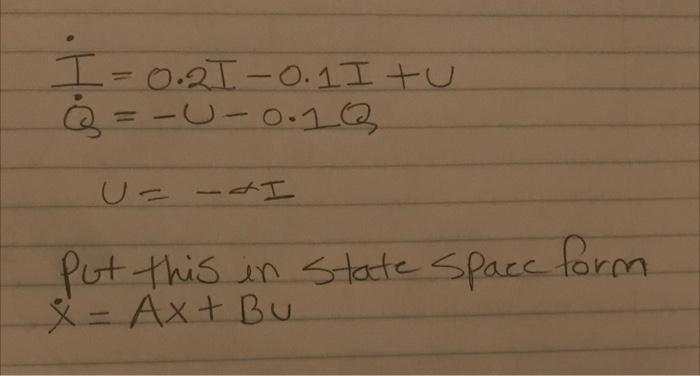 İ = 0.2I - 0.1I + U
Q̇ = -U - 0.1Q
U = -αI
Put this in state space form
ẋ = Ax + Bu